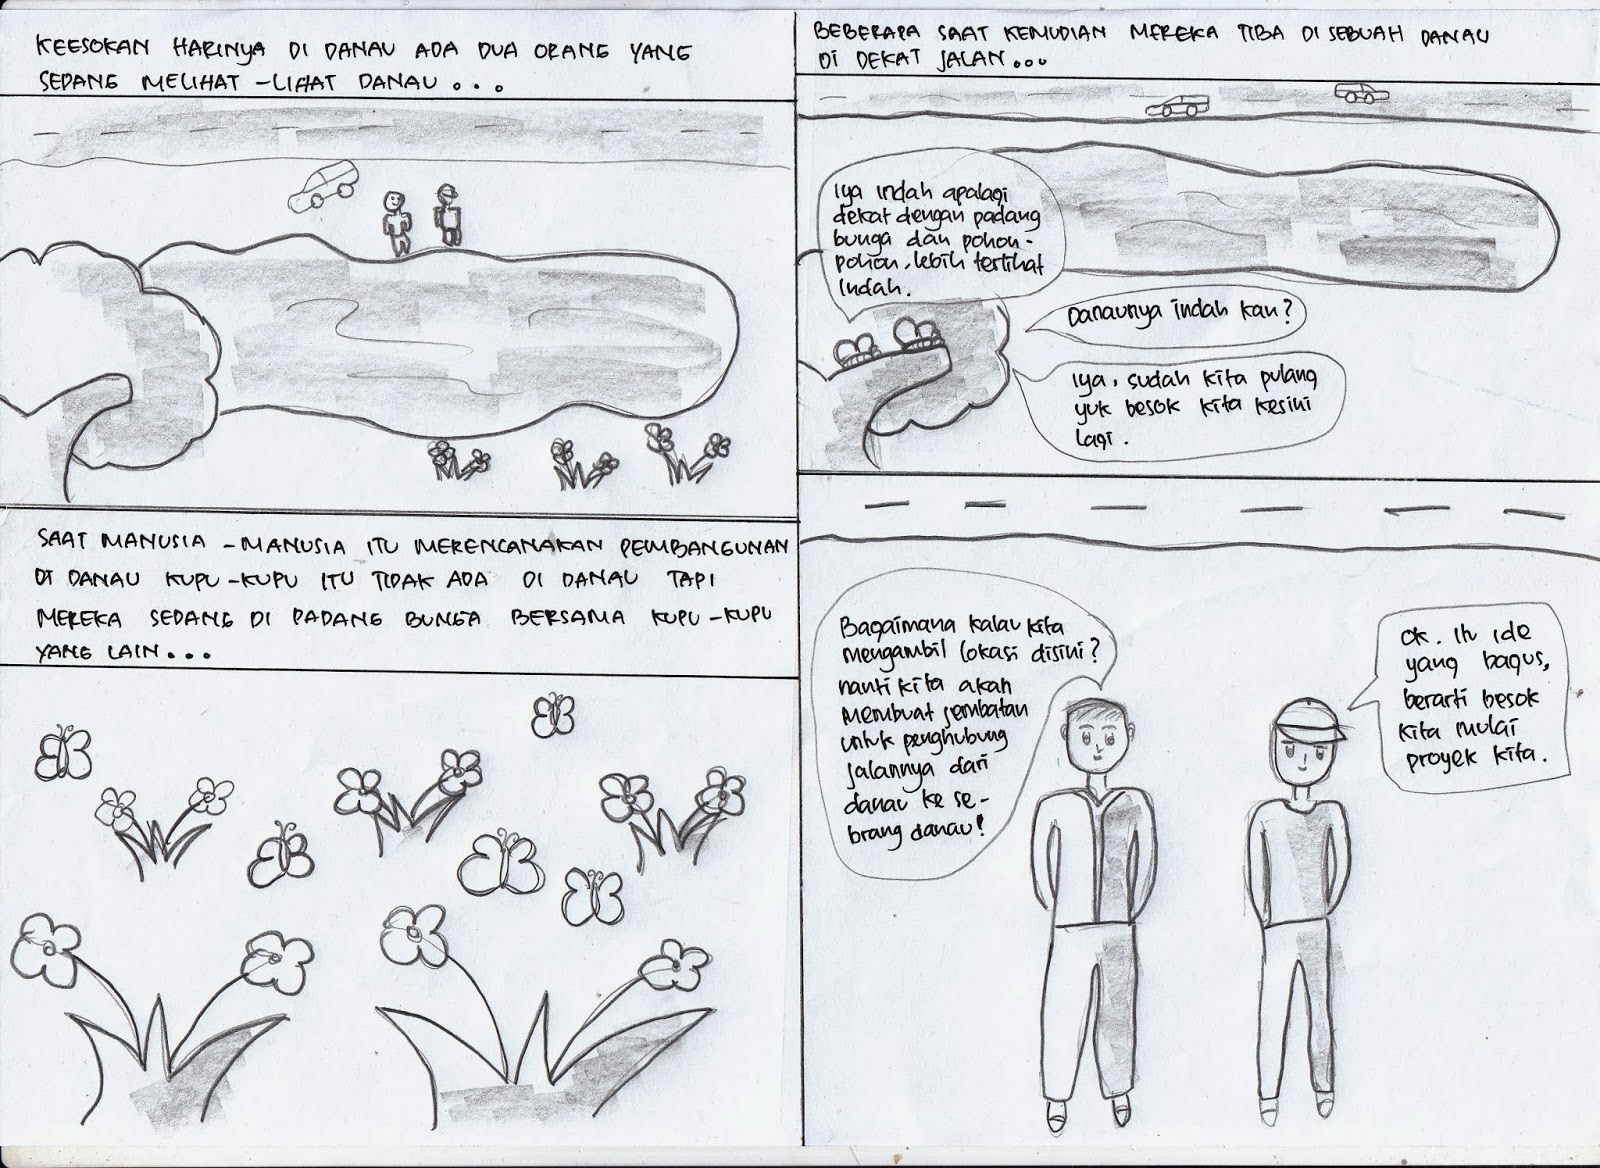 KEESOKAN HARINYA DI DANAU ADA DUA ORANG YANG
SEDANG MELIHAT -LIHAT DANAU . . .
SAAT MANUSIA -MANUSIA ITU MERENCANAKAN PEMBANGUNAN
DI DANAU KUPU-KUPU ITU TIDAK ADA DI DANAU TAPI
MEREKA SEDANG DI PADANG BUNGA BERSAMA KUPU-KUPU
YANG LAIN...
BEBERAPA SAAT KEMUDIAN MEREKA TIBA DI SEBUAH DANAU
DI DEKAT JALAN...
Iya indah apalagi
dekat dengan padang
bunga dan pohon-
pohon. lebih terlihat
indah.
Danaunya indah kan?
Iya. sudah kita pulang
yuk besok kita kesini
lagi.
Bagaimana kalau kita
mengambil lokasi disini?
nanti kita akan
membuat jembatan
untuk penghubung
jalannya dari
danau ke se-
brang danau!
Ok. Itu ide
yang bagus,
berarti besok
kita mulai
proyek kita.